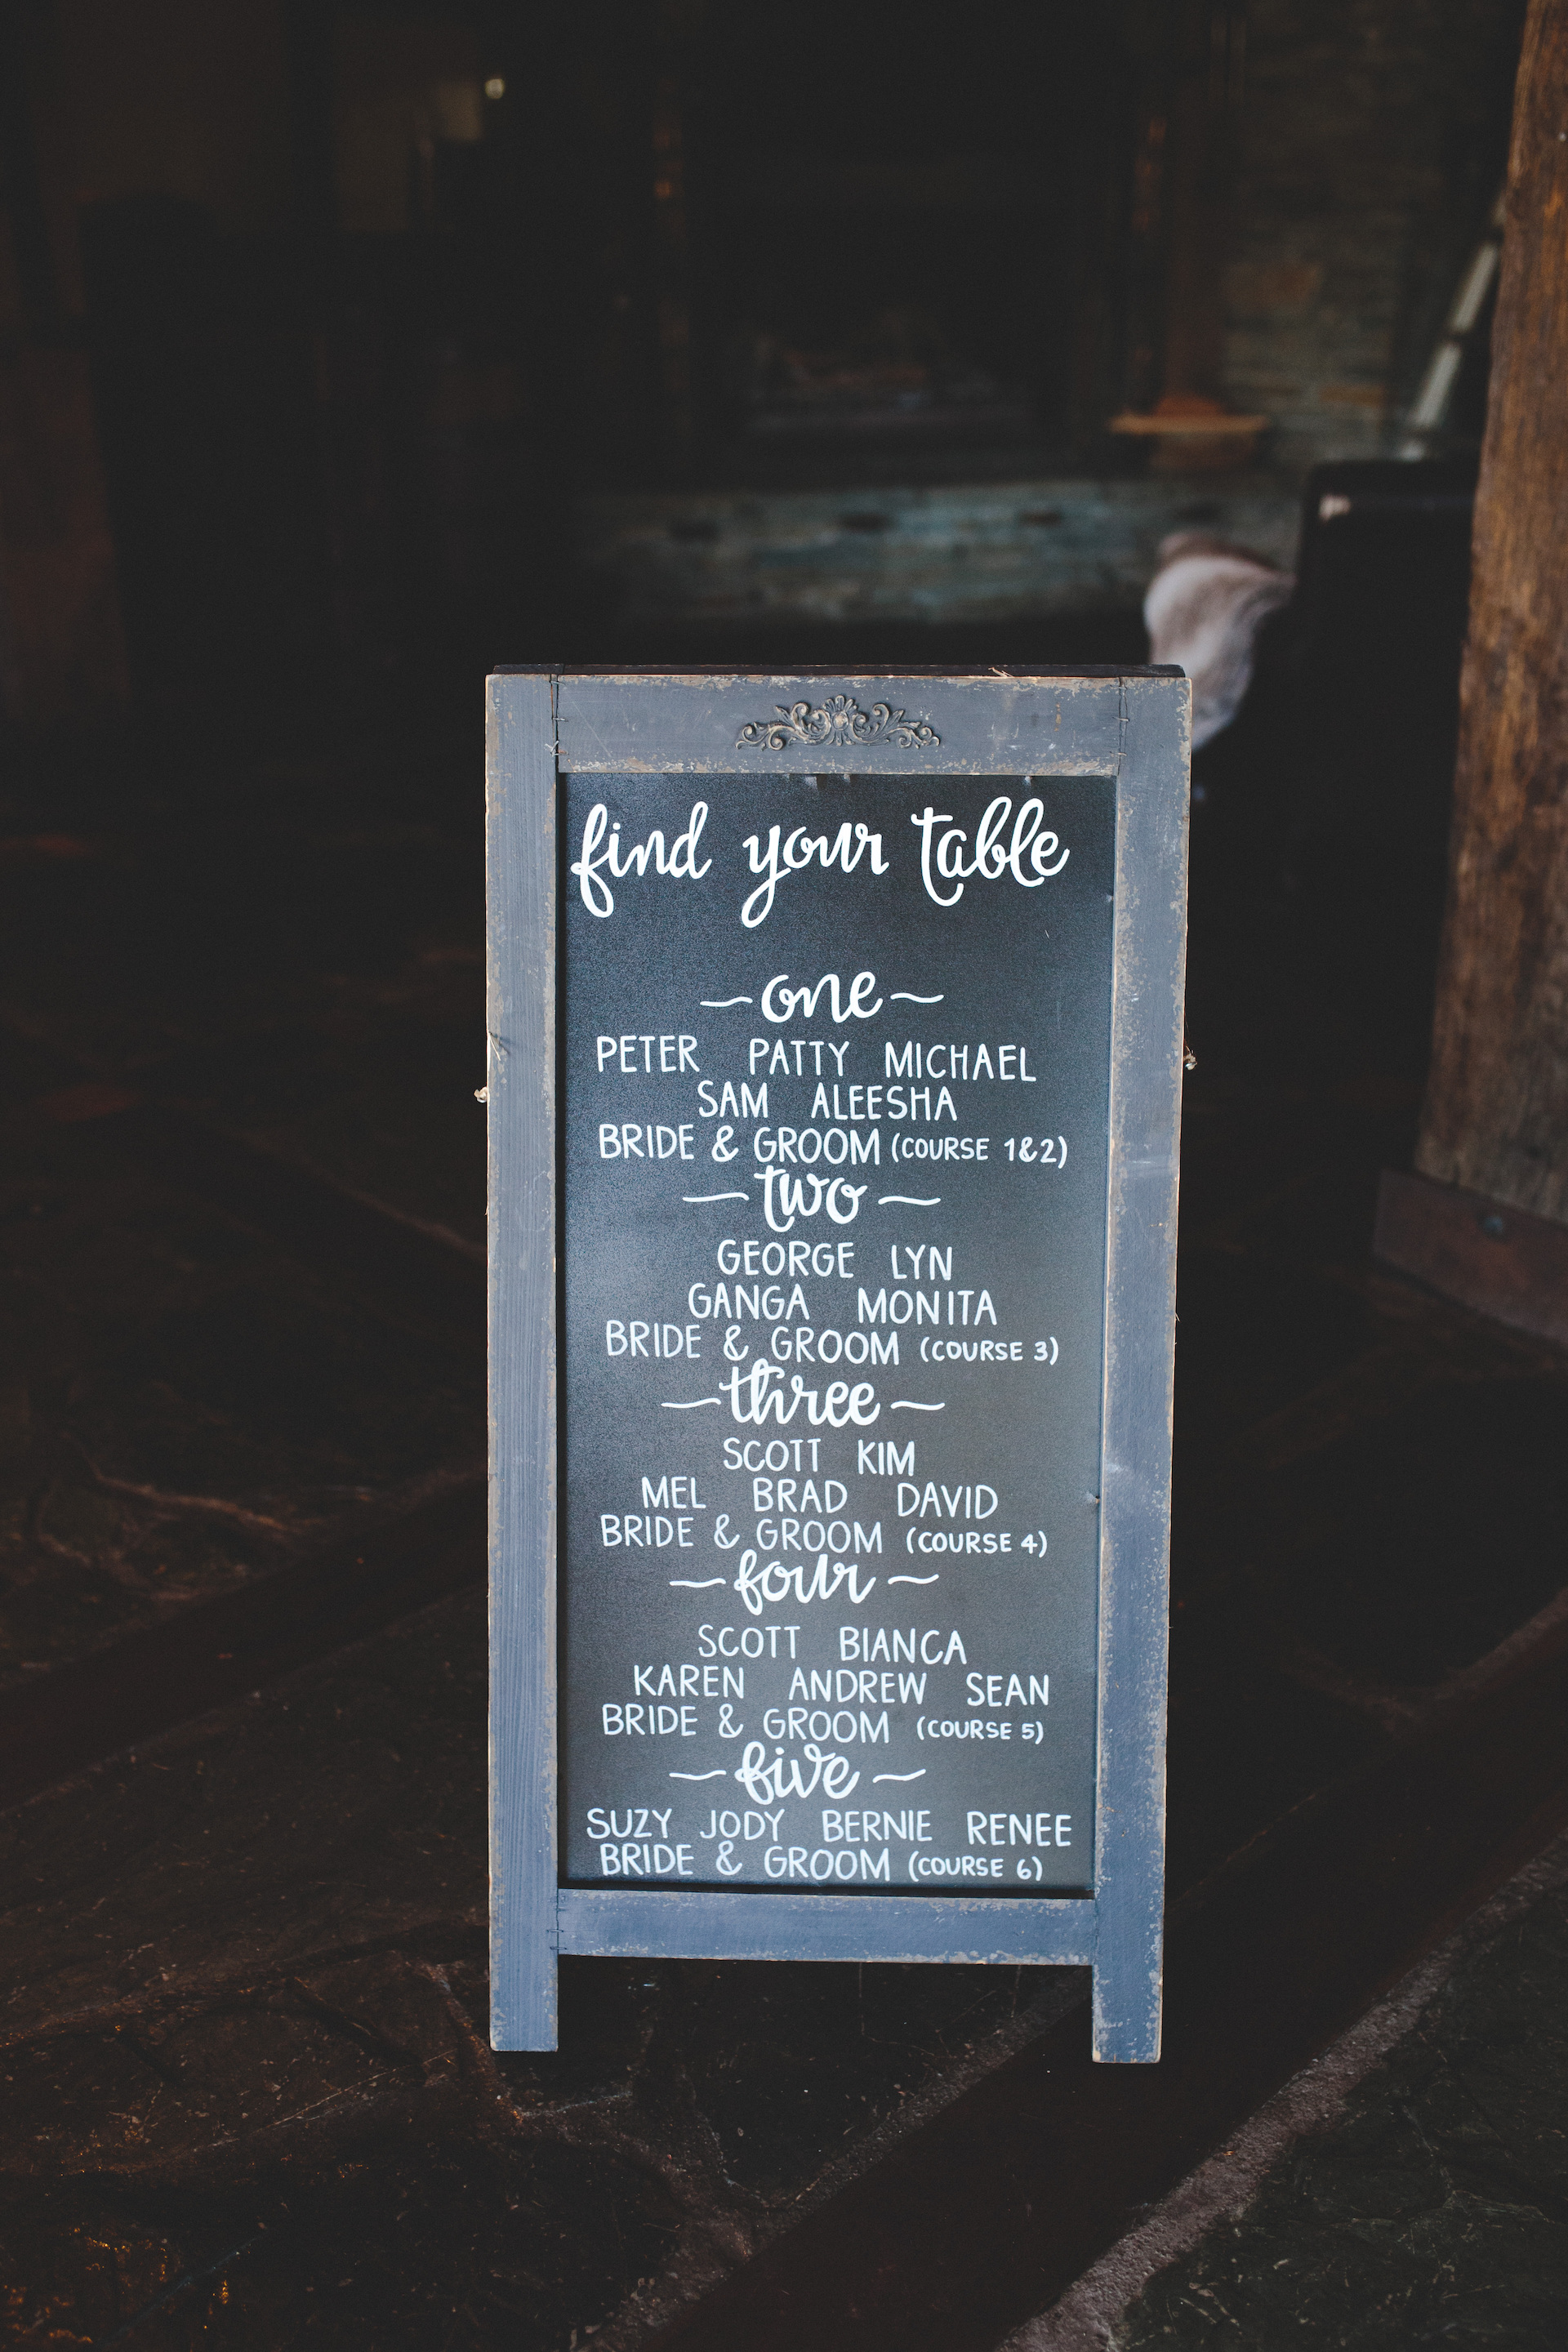 find your table
one
PETER PATTY MICHAEL
SAM ALEESHA
BRIDE & GROOM (COURSE 1&2)
two
GEORGE LYN
GANGA MONITA
BRIDE & GROOM (COURSE 3)
three
SCOTT KIM
MEL BRAD DAVID
BRIDE & GROOM (COURSE 4)
four
SCOTT BIANCA
KAREN ANDREW SEAN
BRIDE & GROOM (COURSE 5)
five
SUZY JODY BERNIE RENEE
BRIDE & GROOM (COURSE 6)